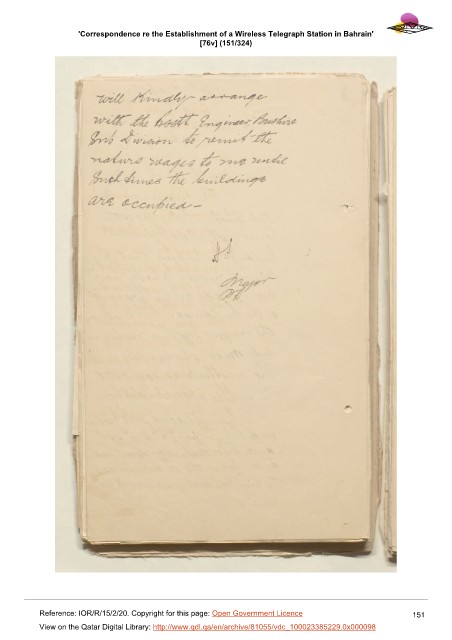 'Correspondence re the Establishment of a Wireless Telegraph Station in Bahrain'
[76v] (151/324)
will kindly arrange
with the Asstt Engineer, Bushire
Sub Division to remit the
wages to me until
Such times the buildings
are occupied —
Major
Reference: IOR/R/15/2/20. Copyright for this page: Open Government Licence
View on the Qatar Digital Library: http://www.qdl.qa/en/archive/81055/vdc_100023385229.0x000098
151